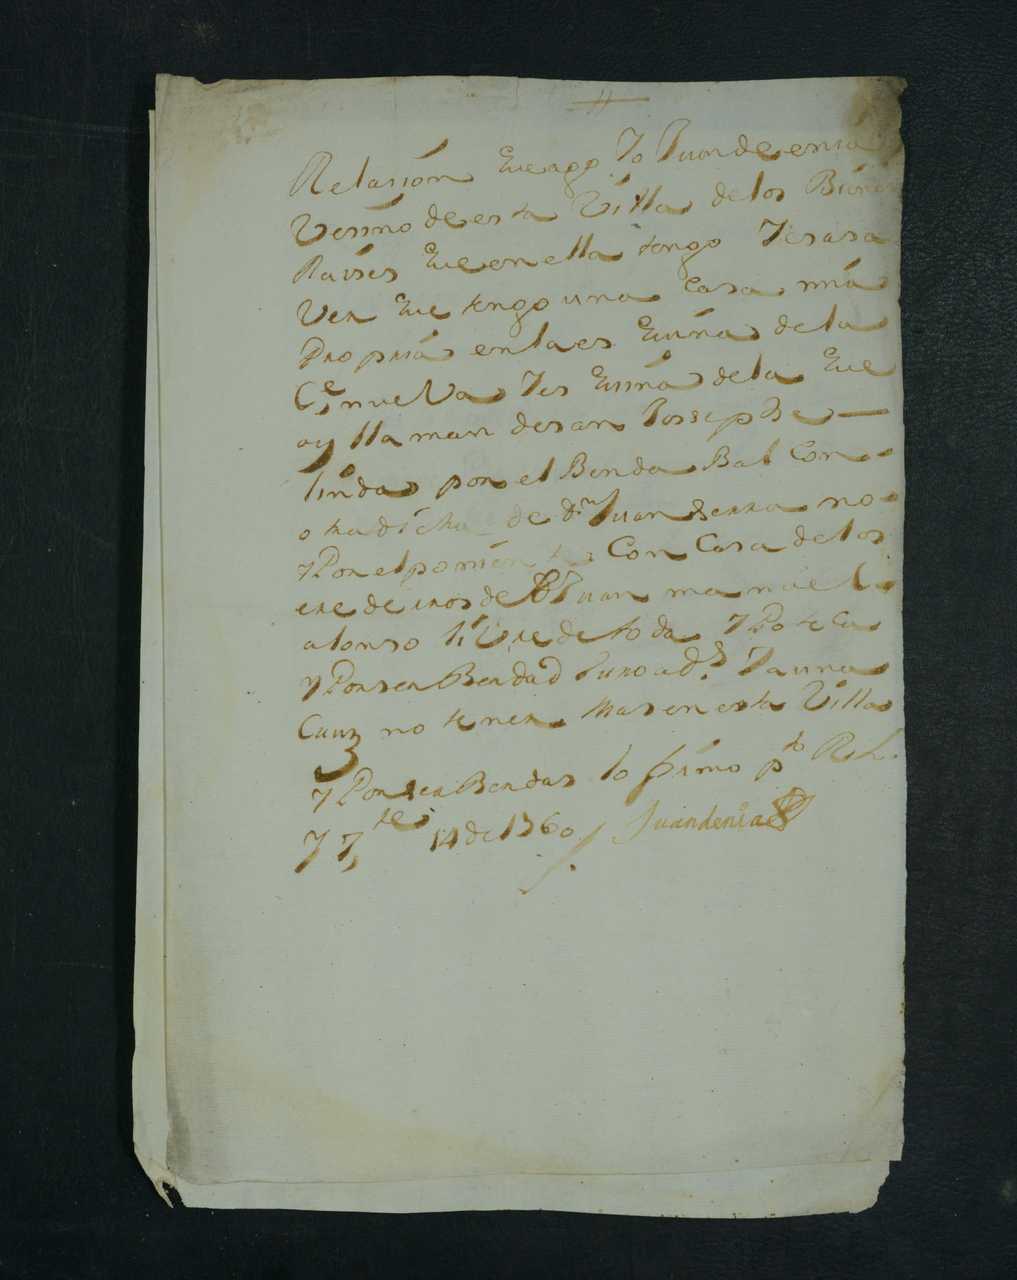 Relasion Eue ago Yo Juan de enia
Vesino de esta Villa de los Bienes
Raises Eue en ella tengo Y es a sa
Ver Eue tengo una Casa mia
Propria en la es Euina de la
Ce nueVa Y es Euina de la Eue
oy lla man de san Jossephe —
linda por el Benda Bal Con
otra dicha de Dn Juan Serra no
y Por el ponien te Con Casa de los
ere de ros de Dn Juan manuel
alonso liVre de to da YPo te Ca
y Por ser Berdad Juro a Ds Y a una
Cruz no tener Mas en esta Villa
y Por ser Berdad lo firmo pto Rl
y 7re 14 de 1760
Juan denia